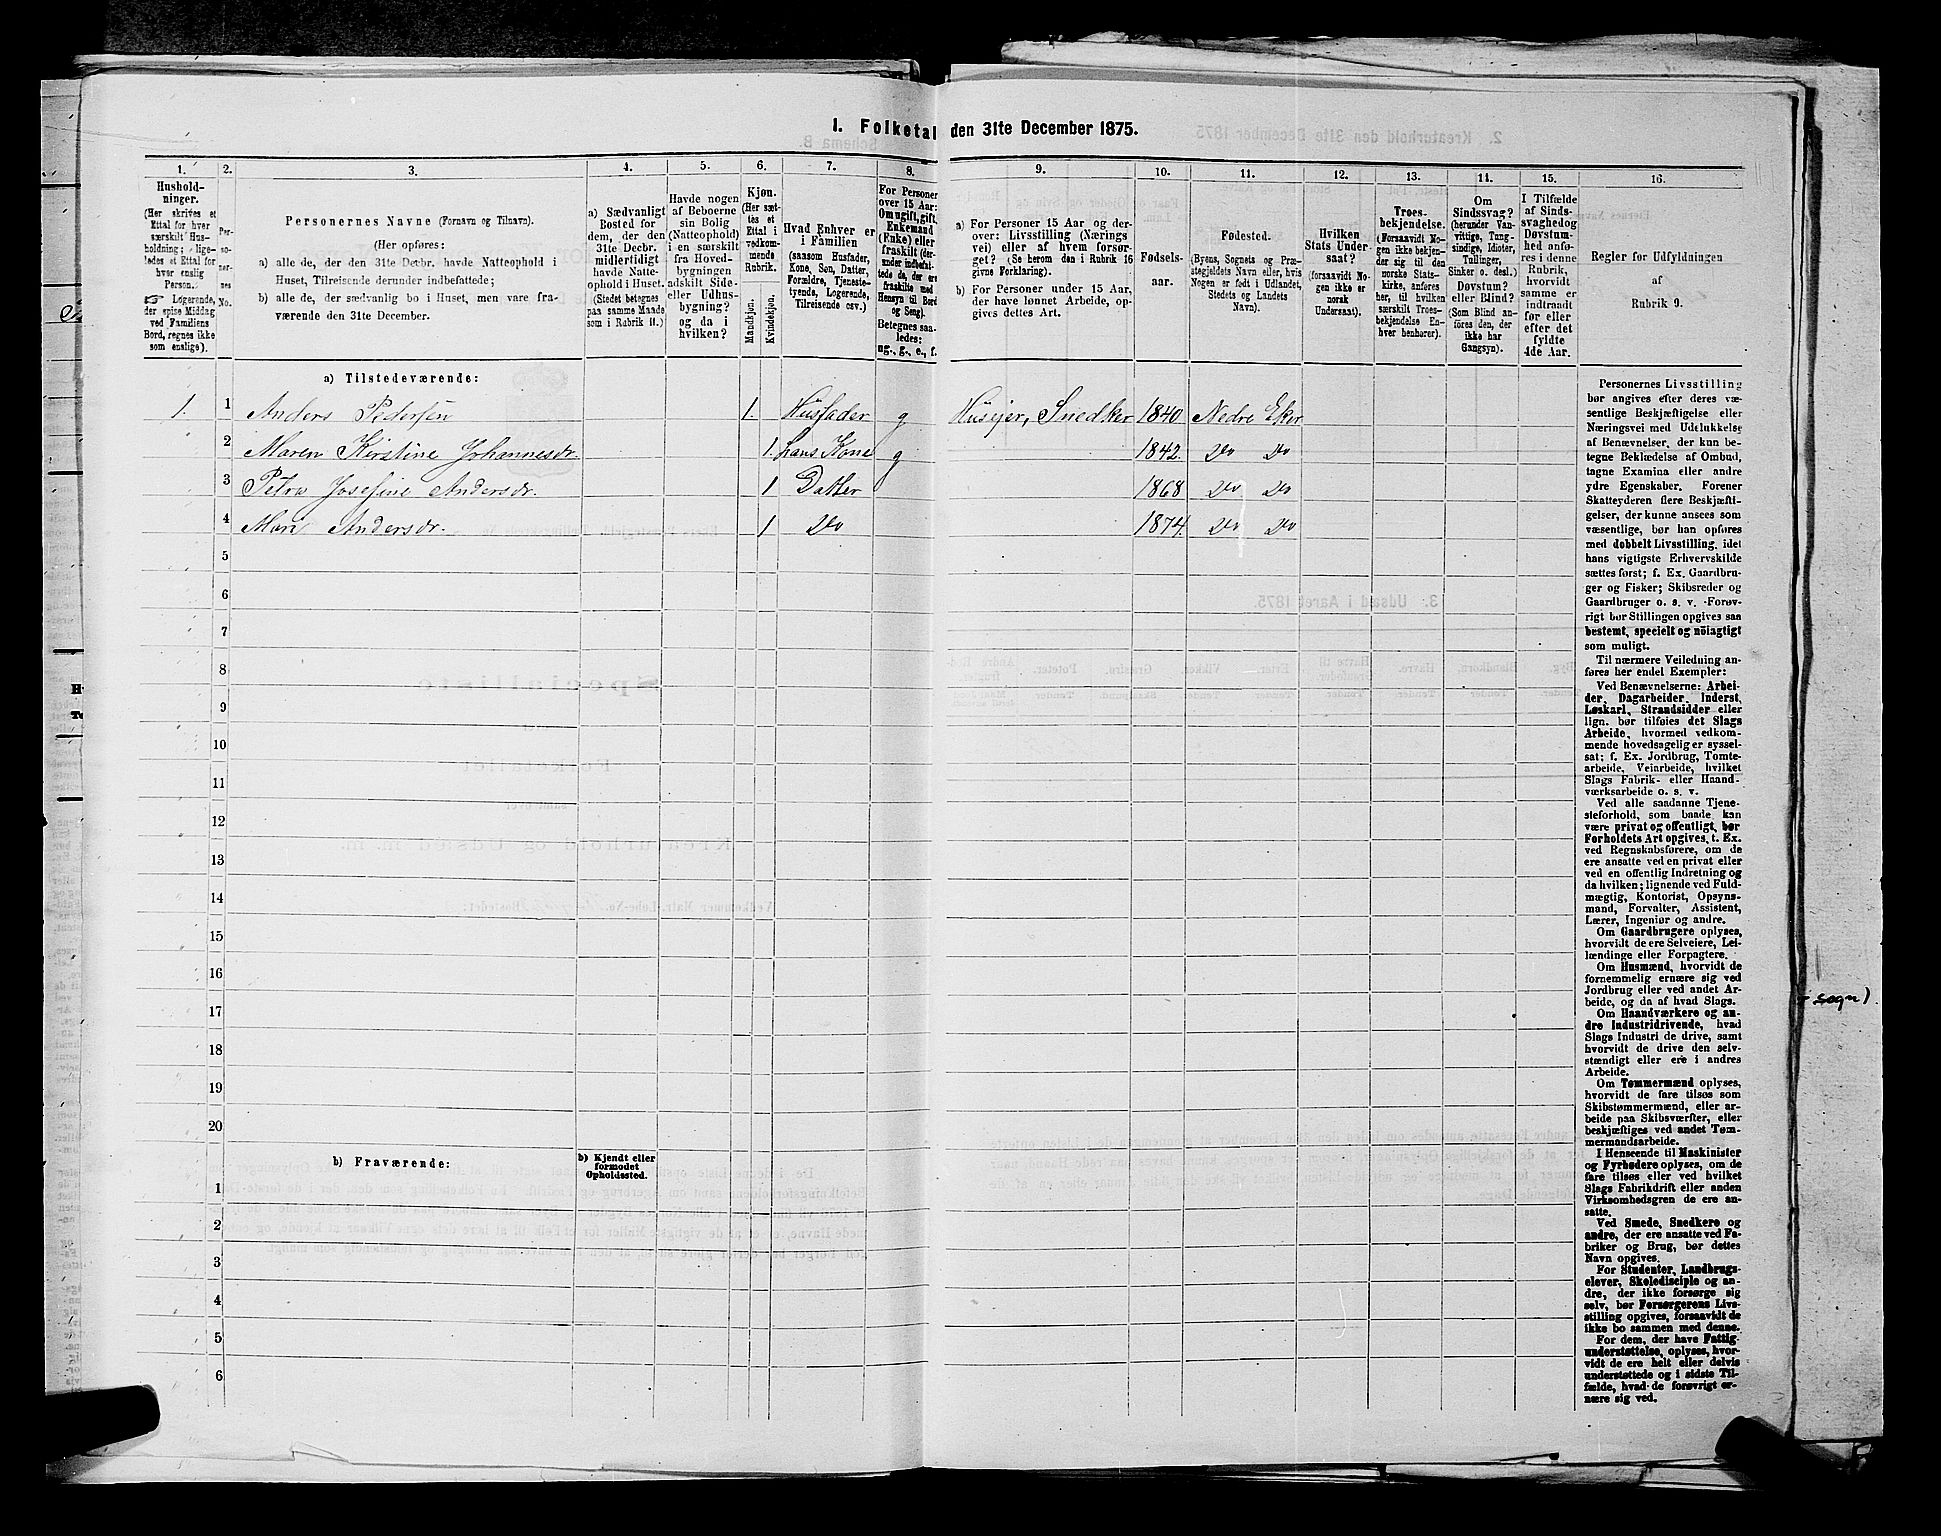 1. Folketal den 31te December 1875.
1.
2.
3.
4.
5.
6.
7.
8.
9.
10.
11.
12.
13.
14.
15.
16.
Hushold-
ninger.
(Her skrives et
Ettal for hver
særskilt Hus-
holdning; lige-
ledes et Ettal for
hver enslig
Person.
☞ Logerende,
der spise Middag
ved Familiens
Bord, regnes ikke
som enslige).
Per-
so-
ner-
nes
No.
Personernes Navne (Fornavn og Tilnavn).
(Her opføres:
a) alle de, der den 31te Decbr. havde Natteophold i
Huset, Tilreisende derunder indbefattede;
b) alle de, der sædvanlig bo i Huset, men vare fra-
værende den 31te December.
a) Sædvanligt
Bosted for
dem, der den
31te Decbr.
midlertidigt
havde Natte-
ophold i Huset.
(Stedet betegnes
paa samme Maade
som i Rubrik 11.)
Havde nogen
af Beboerne
sin Bolig
(Natteophold)
i en særskilt
fra Hoved-
bygningen
adskilt Side-
eller Udhus-
bygning?
og da i
hvilken?
Kjøn.
(Her sæt-
tes et
Ettal i
vedkom-
mende
Rubrik.
Mandkjøn.
Kvindekjøn.
Hvad Enhver er
i Familien
(saasom Husfader,
Kone, Søn, Datter,
Forældre, Tjeneste-
tyende, Logerende,
Tilreisende osv.)
For Personer
over 15 Aar:
Om ugift, gift,
Enkemand
(Enke) eller
fraskilt (der-
under indbefat-
tede de, der ere
fraskilte med
Hensyn til Bord
og Seng).
Betegnes saa-
ledes:
ug., g., e., f.
a) For Personer 15 Aar og der-
over: Livsstilling (Nærings
vei) eller af hvem forsør-
get? (Se herom den i Rubrik 16
givne Forklaring).
b) For Personer under 15 Aar,
der have lønnet Arbeide, op-
gives dettes Art.
Fødsels-
aar.
Fødested.
(Byens, Sognets og Præ-
stegjeldets Navn eller, hvis
Nogen er født i Udlandet,
Stedets og Landets
Navn).
Hvilken
Stats Under-
saat?
(forsaavidt No-
gen ikke er
norsk
Undersaat).
Troes-
bekjendelse.
(Forsaavidt No-
gen ikke bekjen-
der sig til den
norske Stats-
kirke, anføres
her, til hvilken
særskilt Troes-
bekjendelse En-
hver henhører).
Om
Sindssvag?
(herunder Van-
vittige, Tung-
sindige, Idioter,
Tullinger,
Sinker o. desl.)
Døvstum?
eller Blind?
(Som Blind an-
føres den, der
ikke har
Gangsyn).
I Tilfælde
af Sinds-
svaghed og
Døvstum-
hed anfø-
res i denne
Rubrik,
hvorvidt
samme er
indtraadt
før eller
efter det
fyldte
4de Aar.
Regler for Udfyldningen
af
Rubrik 9.
a) Tilstedeværende:
1. 1 Anders Pedersen 1. Husfader g Huseier, Snedker 1840 Nedre Eker
2 Maren Kirstine Johannesdr. 1. hans Kone g 1842. Do Do
3 Petra Josefine Andersdr. 1 Datter 1868 Do Do
4 Mari Andersdr. 1 Do 1874. Do Do
5
6
7
8
9
10
11
12
13
14
15
16
17
18
19
20
b) Fraværende:
b) Kjendt eller
formodet
Opholdssted.
1
2
3
4
5
6
Personernes Livsstilling
bør angives efter deres væ-
sentlige Beskjæftigelse eller
Næringsvei med Udelukkelse
af Benævnelser, der kun be-
tegne Beklædelse af Ombud,
tagne Examina eller andre
ydre Egenskaber. Forener
Skatteyderen flere Beskjæfti-
gelser, der kunne ansees som
væsentlige, bør han opføres
med dobbelt Livsstilling, idet
hans vigtigste Erhvervskilde
sættes først; f. Ex. Gaardbru-
ger og Fisker; Skibsreder og
Gaardbruger o. s. v. Forøv-
rigt bør Stillingen opgives saa
bestemt, specielt og nöiagtigt
som muligt.
Til nærmere Veiledning an-
føres her endel Exempler:
Ved Benævnelserne: Arbei-
der, Dagarbeider, Inderst,
Løskarl, Strandsidder eller
lign. bør tilføies det Slags
Arbeide, hvormed vedkom-
mende hovedsagelig er syssel-
sat; f. Ex. Jordbrug, Tomte-
arbeide, Veiarbeide, hvilket
Slags Fabrik- eller Haand-
værksarbeide o. s. v.
Ved alle saadanne Tjene-
steforhold, som baade kan
være privat og offentligt, bør
Forholdets Art opgives, t. Ex.
ved Regnskabsførere, om de
ere ansatte ved en privat eller
ved en offentlig Indretning og
da hvilken; lignende ved Fuld-
mægtig, Kontorist, Opsyns-
mand, Forvalter, Assistent,
Lærer, Ingeniør og andre.
Om Gaardbrugere oplyses,
hvorvidt de ere Selveiere, Lei-
lændinge eller Forpagtere.
Om Husmænd, hvorvidt de
fornemmelig ernære sig ved
Jordbrug eller ved andet Ar-
beide, og da af hvad Slags.
Om Haandværkere og an-
dre Industridrivende, hvad
Slags Industri de drive, samt
hvorvidt de drive den selv-
stændigt eller ere i andres
Arbeide.
Om Tømmermænd oplyses,
hvorvidt de fare tilsøs som
Skibstømmermænd, eller ar-
beide paa Skibsværfter, eller
beskjæftiges ved andet Tøm-
mermandsarbeide.
I Henseende til Maskinister
og Fyrbødere oplyses, om de
fare tilsøs eller ved hvilket
Slags Fabrikdrift eller anden
Virksomhedsgren de ere an-
satte.
Ved Smede, Snedkere og
andre, der ere ansatte ved Fa-
briker og Brug, bør dettes
Navn opgives.
For Studenter, Landbrugs-
elever, Skoledisciple og an-
dre, der ikke forsørge sig
selv, bør Forsørgerens Livs-
stilling opgives, forsaavidt de
ikke bo sammen med denne.
For dem, der have Fattig-
understøttelse, oplyses, hvor-
vidt de ere helt eller delvis
understøttede og i sidste Til-
fælde, hvad de forøvrigt er-
nære sig ved.
sogn)